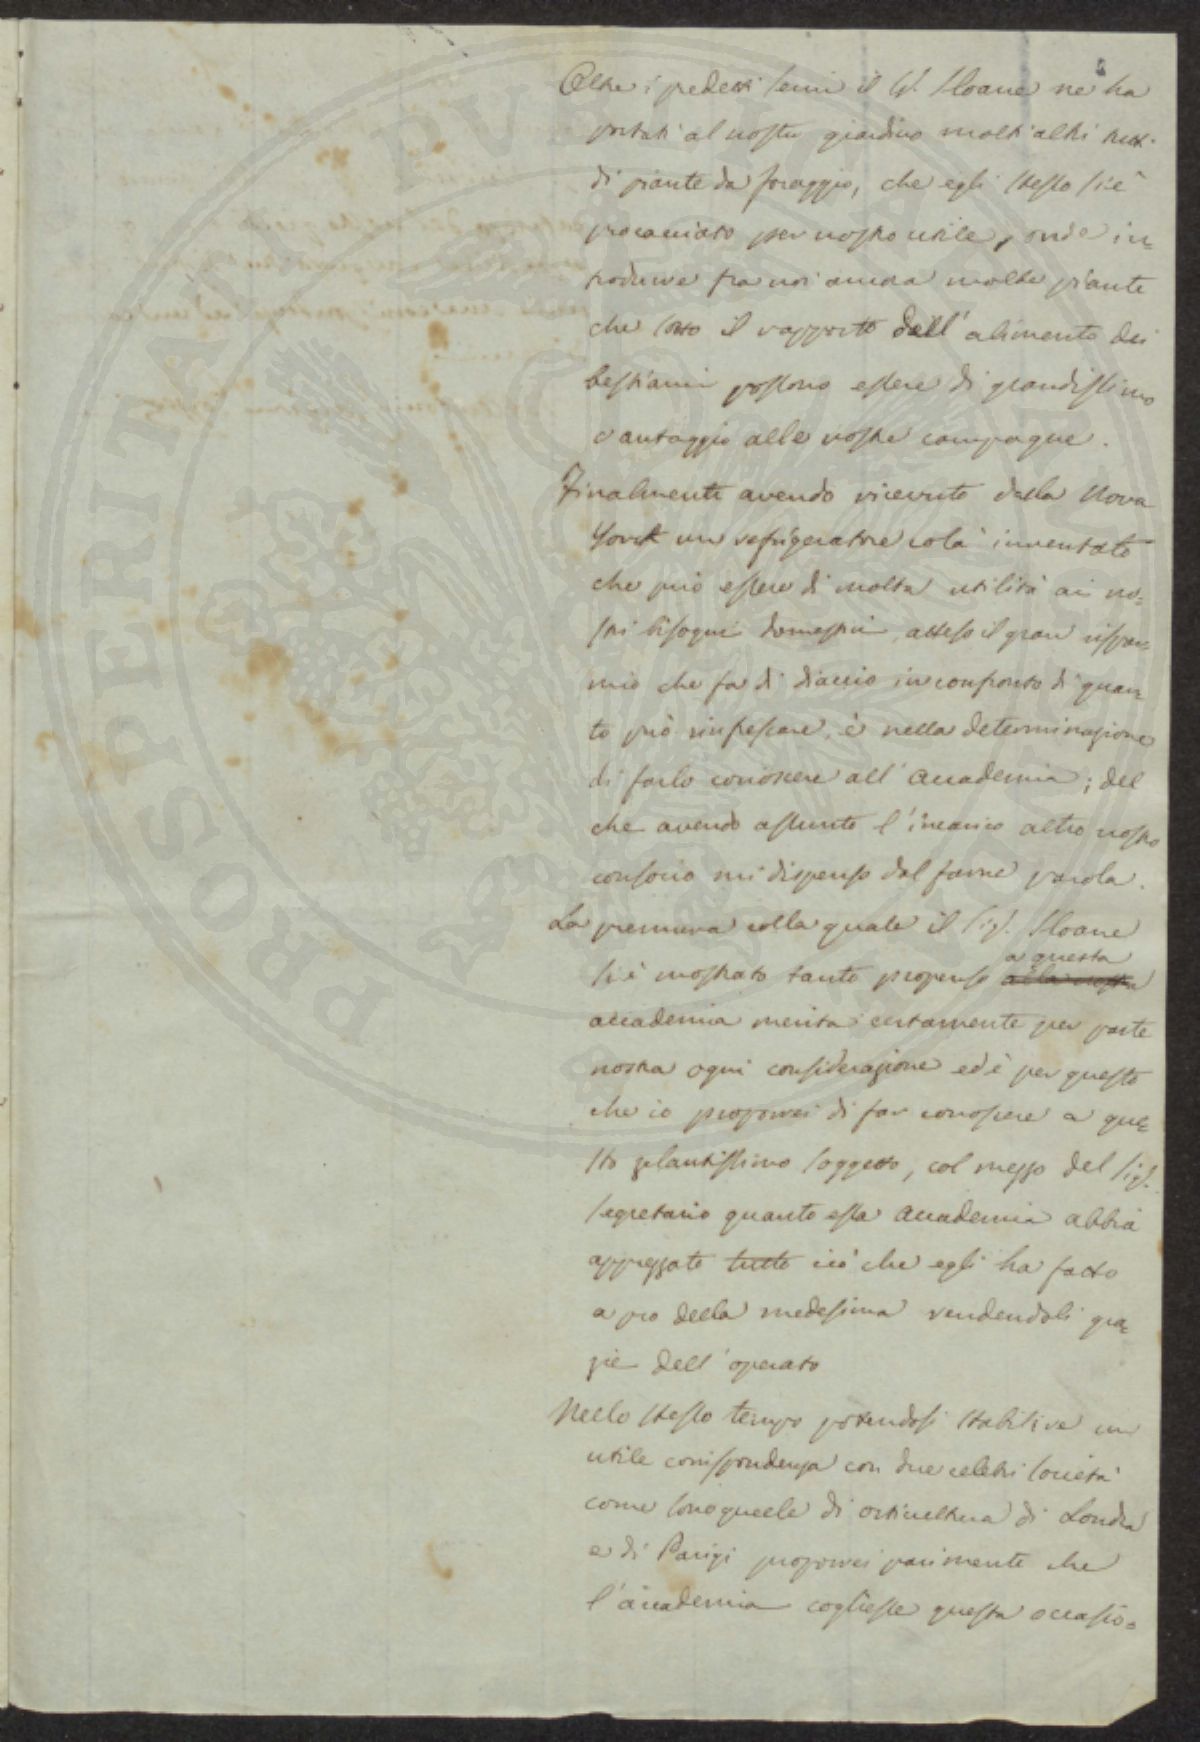 Oltre i predetti semi il S.r Sloane ne ha
portati al nostro giardino molti altri tutti
di piante da foraggio, che egli stesso si è
procacciato per nostro utile, onde in=
trodurre fra noi ancora molte piante
che sotto il rapporto dell' alimento dei
bestiami possono essere di grandissimo
vantaggio alle nostre campagne.
Finalmente avendo ricevuto dalla Nova
York un refrigeratore colà inventato
che può essere di molta utilità ai no=
stri bisogni domestici, atteso il gran rispar=
mio che fa di diaccio in confronto di quan=
to può rinfrescare, è nella determinazione
di farlo conoscere all' Accademia; del
che avendo assunto l'incarico altro nostro
consocio mi dispenso dal farne parola.
La premura colla quale il Sig.r Sloane
a questa
si è mostrato tanto propenso alla nostra
accademia merita certamente per parte
nostra ogni considerazione ed è per questo
che io proporrei di far conoscere a que=
sto zelantissimo soggetto, col mezzo del Sig.r
Segretario quanto essa Accademia abbia
apprezzato tutto ciò che egli ha fatto
a pro della medesima rendendoli gra=
zie dell' operato
Nello stesso tempo potendosi stabilire un
utile corrispondenza con due celebri società
come sono quelle di orticultura di Londra
e di Parigi proporrei parimente che
l'accademia cogliesse questa occasio=
PROSPERITATI PUBLICAE